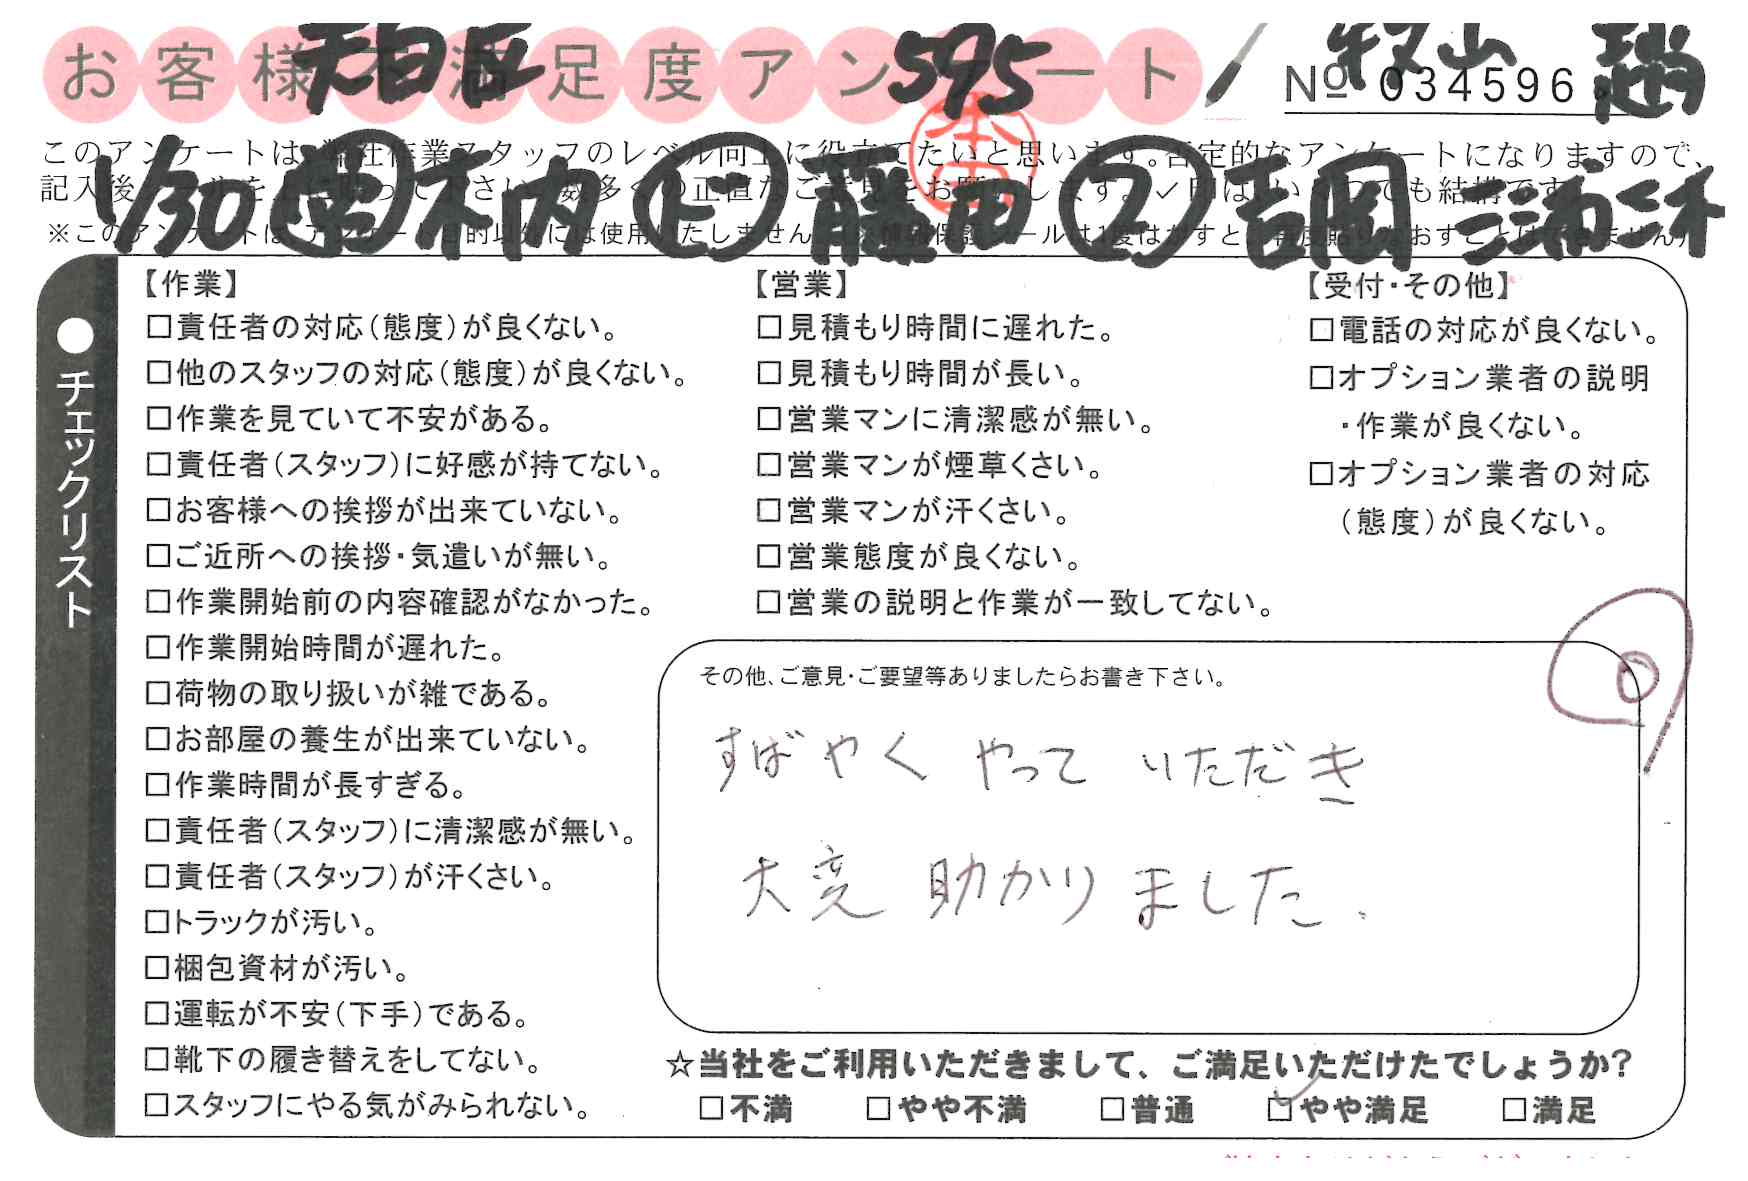 お客様不満足度アンケート
天白区 595 牧山
№ 034596
このアンケートは、弊社作業スタッフのレベル向上に役立てたいと思います。否定的なアンケートになりますので、
記入後シールを上に貼って下さい。数多くの正直なご意見をお願いします。✓印はいくつでも結構です。
本田
1/30 木内 藤田 ② 吉岡 三浦
【作業】
□責任者の対応(態度)が良くない。
□他のスタッフの対応(態度)が良くない。
□作業を見ていて不安がある。
□責任者(スタッフ)に好感が持てない。
□お客様への挨拶が出来ていない。
□ご近所への挨拶・気遣いが無い。
□作業開始前の内容確認がなかった。
□作業開始時間が遅れた。
□荷物の取り扱いが雑である。
□お部屋の養生が出来ていない。
□作業時間が長すぎる。
□責任者(スタッフ)に清潔感が無い。
□責任者(スタッフ)が汗くさい。
□トラックが汚い。
□梱包資材が汚い。
□運転が不安(下手)である。
□靴下の履き替えをしてない。
□スタッフにやる気がみられない。
【営業】
□見積もり時間に遅れた。
□見積もり時間が長い。
□営業マンに清潔感が無い。
□営業マンが煙草くさい。
□営業マンが汗くさい。
□営業態度が良くない。
□営業の説明と作業が一致してない。
【受付・その他】
□電話の対応が良くない。
□オプション業者の説明
・作業が良くない。
□オプション業者の対応
(態度)が良くない。
●チェックリスト
その他、ご意見・ご要望等ありましたらお書き下さい。
すばやく やって いただき
大変 助かりました.
☆当社をご利用いただきまして、ご満足いただけたでしょうか?
□不満 □やや不満 □普通 ☑やや満足 □満足